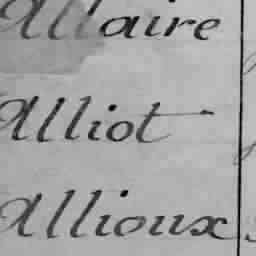 Allaire
Alliot
Allioux